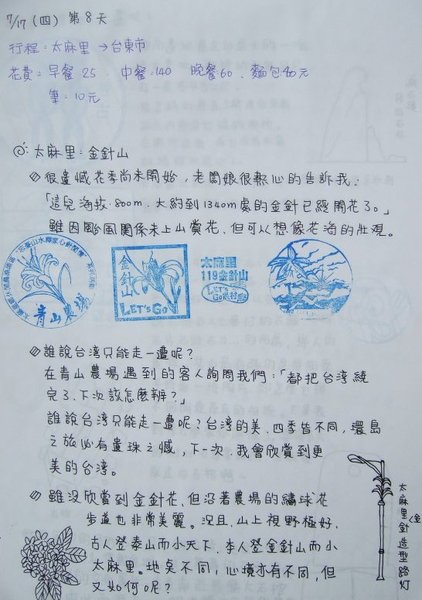 7/17 (四) 第8天
行程：太麻里→台東市
花費：早餐25 中餐140 晚餐60、麵包40元
筆：10元
◎：太麻里：金針山
很遺憾花季尚未開始，老闆娘很熱心的告訴我：
「這兒海拔800m，大約到1340m處的金針已經開花了。」
雖因颱風關係未上山賞花，但可以想像花海的壯觀。
青山農場
金針山
LET'S GO
太麻里
119金針山
LET'S Go
誰說台灣只能走一遍呢？
在青山農場遇到的客人詢問我們：「都把台灣繞
完了，下次該怎麼辦？」
誰說台灣只能走一遍呢？台灣的美、四季皆不同，環島
之旅必有遺珠之憾，下一次，我會欣賞到更
美的台灣。
雖沒欣賞到金針花，但沿著農場的繡球花
步道也非常美麗。況且，山上視野極好，
古人登泰山而小天下，本人登金針山而小
太麻里。地矣不同，心境亦有不同，但
又如何呢？
太麻里金針造型路灯